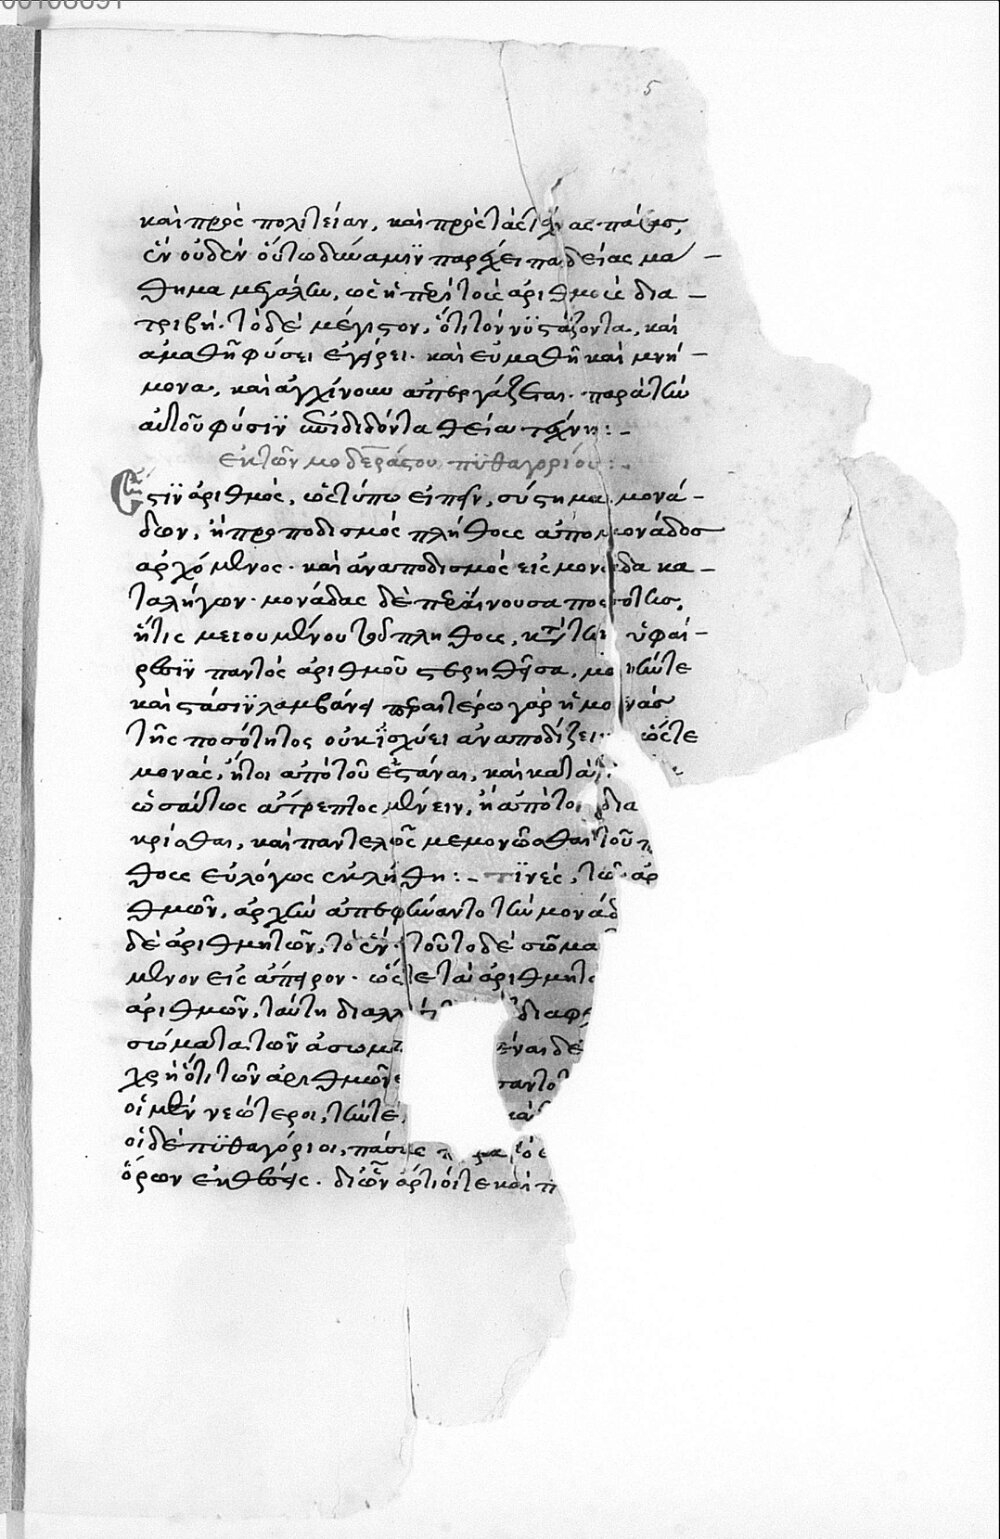 5
καὶ πρὸς πολιτείαν, καὶ πρὸς τὰς τέχνας πάσας,
ἓν οὐδὲν οὕτω δύναμιν παρέχει παιδείας μά
θημα μεγάλην, ὡς ἡ περὶ τοὺς ἀριθμοὺς δια
τριβή. τὸ δὲ μέγιστον, ὅτι τὸν νυστάζοντα, καὶ
ἀμαθῆ φύσει ἐγείρει. καὶ εὐμαθῆ καὶ μνή
μονα, καὶ ἀγχίνουν ἀπεργάζεται. παρὰ τὴν
αὐτοῦ φύσιν ἐπιδιδόντα θεία τέχνη :
ἐκ τῶν μοδεράτου πυθαγορίου :
Ἔστιν ἀριθμὸς, ὡς τύπω εἰπεῖν, σύστημα μονά
δων, ἢ προποδισμὸς πλήθους ἀπο μονάδος
ἀρχόμενος. καὶ ἀναποδισμὸς εἰς μονάδα κα
ταλήγων. μονάδας δὲ περαίνουσα ποσότης,
ἥτις μειουμένου τοῦ πλήθους, κατὰ τὴν ὑφαί
ρεσιν παντὸς ἀριθμοῦ στερηθεῖσα, μονήν τε
καὶ στάσιν λαμβάνει περαιτέρω γὰρ ἡ μονὰς
τῆς ποσότητος οὐκ ἰσχύει ἀναποδίζειν ὥστε
μονὰς, ἤτοι ἀπὸ τοῦ ἑστάναι, καὶ κατὰ
ὡσαύτως ἄτρεπτος μένειν, ἢ ἀπὸ τοῦ δια
κρίσθαι, καὶ παντελῶς μεμονῶσθαι τοῦ π
θους εὐλόγως ἐκλήθη : τινὲς, τῶν ἀρ
θμῶν, ἀρχὴν ἀπεφήναντο τὴν μονάδ
δὲ ἀριθμητῶν, τὸ ἓν. τοῦτο δὲ σῶμα
μενον εἰς ἄπειρον. ὥστε τὰ ἀριθμητὰ
ἀριθμῶν, ταύτη διαλλ διαφ
σώματα τῶν ἀσωμ εἰδέναι δὲ
χρὴ ὅτι τῶν ἀριθμῶν
οἱ μὲν νεώτεροι, τήν τε
οἱ δὲ πυθαγόριοι, πᾶσαν
ὅρων ἔκθεσις. δι ὧν ἄρτιοί τε καὶ π